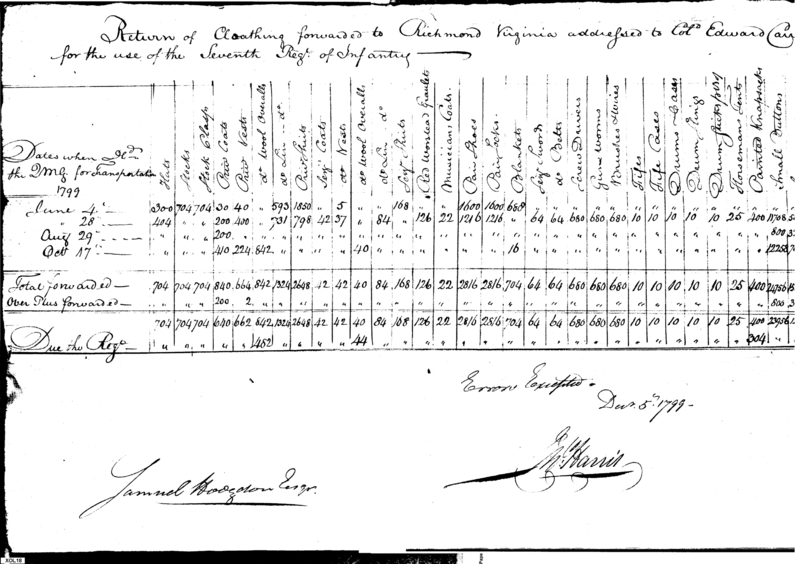 Return of Cloathing forwarded to Richmond Virginia addressed to Colo. Edward
for the use of the Seventh Regt. of Infantry
Dates when
the QMG for Transportation
1799
Hats
Socks
Stock Clasps
Privt Coats
Privt Vests
do Wool Overalls
do Lin do
Privt Shirts
Sejt Coats
do Vests
do Wool Overalls
do Lin do
Sejt Shirts
Red Worstead
Musicians Coats
Pair Shoes
Pair Socks
Blankets
Sejt Swords
do Belts
Screw Drivers
Gun worms
Brushes & Wires
Fifes
Fife Cases
Drums & Cases
Drum Slings
Drum Sticks prs
Horsemans Tents
Painted Knapsacks
Small Buttons
June 4th 300 704 704 30 40 " 593 1850 " 5 " " 168 " " 1600 1600 688
28 404 " " 200 400 " 731 798 42 37 " 84 " 126 22 1216 1216 " 64 64 680 680 680 10 10 10 10 10 25 400 11708
Aug 29 " " " 200 " 800
Octr 17 " " " 410 224 842 " " " " 40 " " " " " " 16 " 12258
Total forwarded 704 704 704 840 664 842 1324 2648 42 42 40 84 168 126 22 2816 2816 704 64 64 680 680 680 10 10 10 10 10 25 400 24756
Over Plus forwarded " " " 200 2 " 800
704 704 704 640 662 842 1324 2648 42 42 40 84 168 126 22 2816 2816 704 64 64 680 680 680 10 10 10 10 10 25 400 23956
Due tho Regt " " " " " 482 " " " " 44 " 304
Errors Excepted
Decr. 5th 1799
Harris
Samuel Hodgdon Esqr.